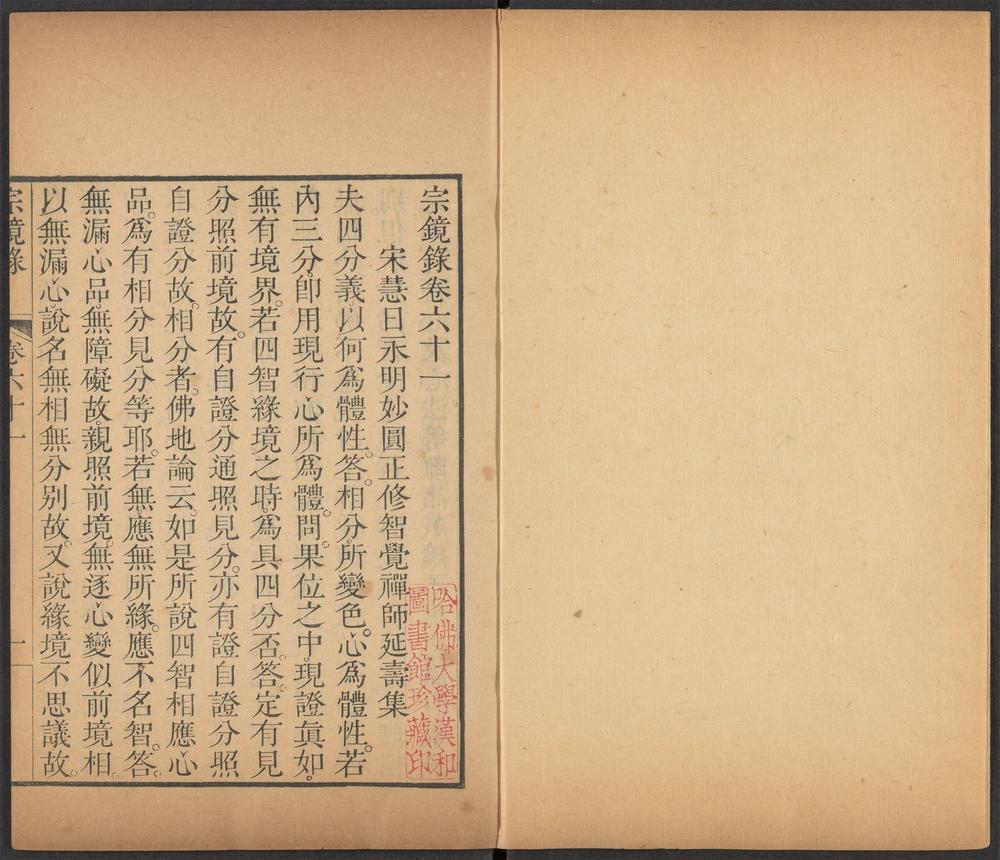 宗鏡錄卷六十一
宋慧日永明妙圓正修智覺禪師延壽集
夫四分義以何爲體性。答。相分所變色。心爲體性。若
內三分。卽用現行心所爲體。問。果位之中。現證眞如。
無有境界。若四智緣境之時。爲具四分否。答。定有見
分照前境故。有自證分通照見分。亦有證自證分照
自證分故。相分者。佛地論云。如是所說四智相應心
品。爲有相分見分等耶。若無應無所緣。應不名智。答。
無漏心品。無障礙故。親照前境。無逐心變似前境相。
以無漏心。說名無相無分別故。又說緣境不思議故。
宗鏡錄 卷六十一 一
哈佛大學漢和
圖書館珍藏印